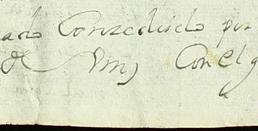 ado Conzedido por
de Vm; Con el q